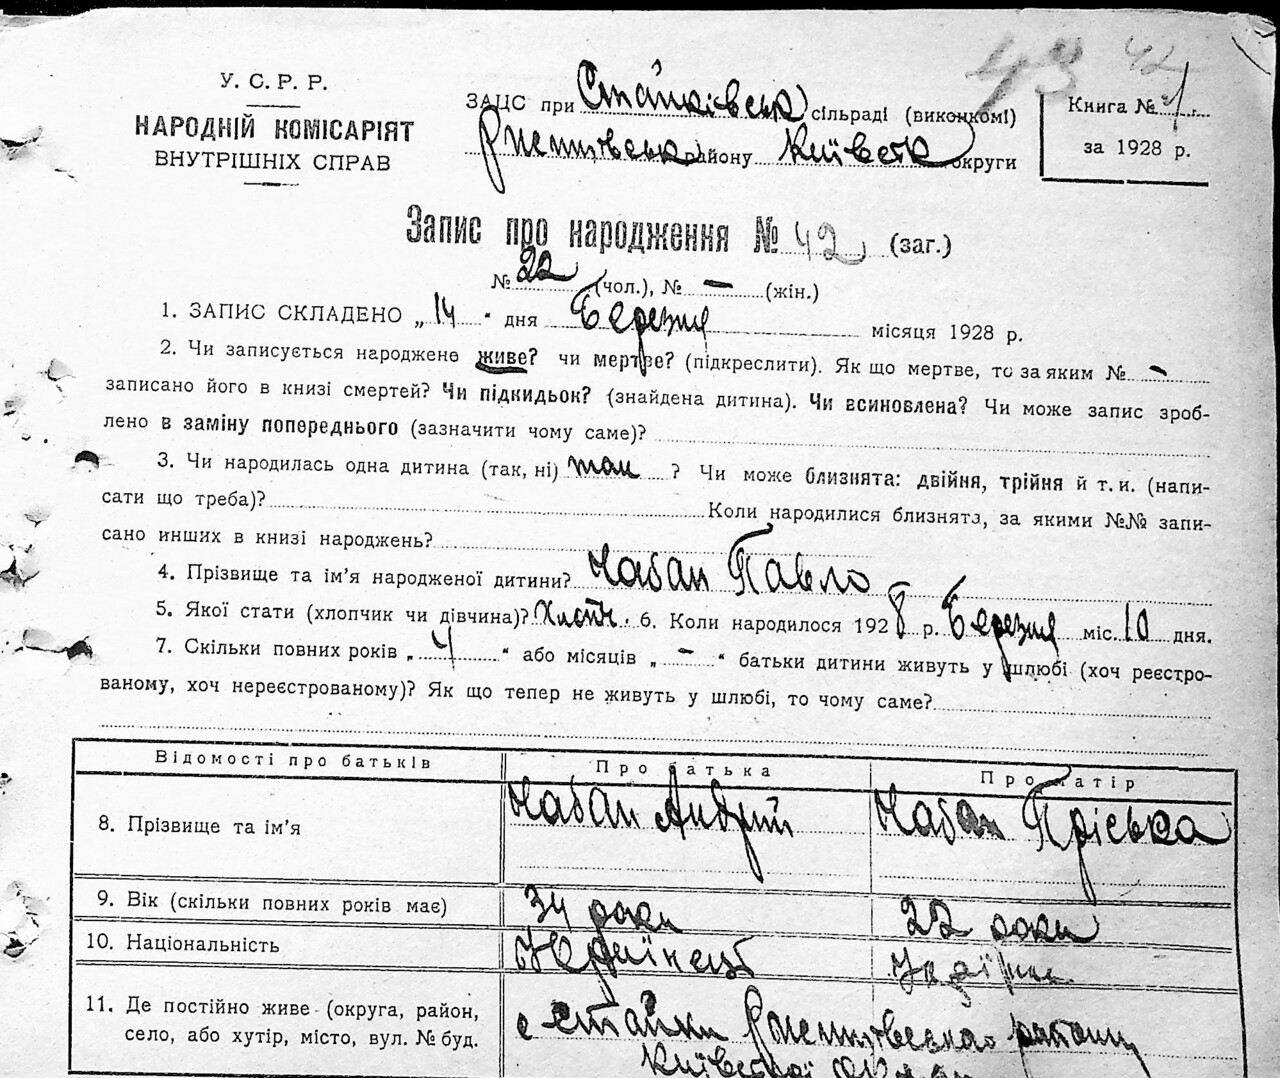 43 42
У. С. Р. Р.
НАРОДНІЙ КОМІСАРІЯТ
ВНУТРІШНІХ СПРАВ
ЗАЦС при Стайківськ сільраді (виконкомі)
Ржищівськ району Київськ округи
Книга № 1
за 1928 р.
Запис про народження № 42 (заг.)
№ 22 (чол.), № – (жін.)
1. ЗАПИС СКЛАДЕНО „ 14 “ дня Березня місяця 1928 р.
2. Чи записується народжене живе? чи мертве? (підкреслити). Як що мертве, то за яким № –
записано його в книзі смертей? Чи підкидьок? (знайдена дитина). Чи всиновлена? Чи може запис зроб-
лено в заміну попереднього (зазначити чому саме)?
3. Чи народилась одна дитина (так, ні) так ? Чи може близнята: двійня, трійня й т. и. (напи-
сати що треба)? Коли народилися близнята, за якими №№ запи-
сано инших в книзі народжень?
4. Прізвище та ім’я народженої дитини? Чабан Павло
5. Якої стати (хлопчик чи дівчина)? Хлопч. 6. Коли народилося 1928 р. Березня міс. 10 дня.
7. Скільки повних років „ 4 “ або місяців „ – “ батьки дитини живуть у шлюбі (хоч реєстро-
ваному, хоч нереєстрованому)? Як що тепер не живуть у шлюбі, то чому саме?
Відомості про батьків Про батька Про матір
8. Прізвище та ім’я Чабан Андрій Чабан Пріська
9. Вік (скільки повних років має) 34 роки 22 роки
10. Національність Українець Українка
11. Де постійно живе (округа, район, с Стайки Ржищівського району
село, або хутір, місто, вул. № буд. Київської округи